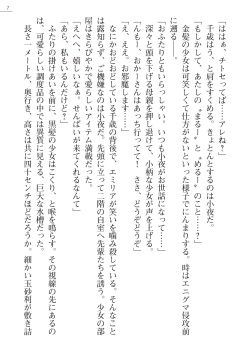 7
「ははぁ。チトセってば……アレね？」
千歳はうっとする。めるー、きょとんとするのは小夜だ。
「もしかして、あたしの〝める〟と〝めるー〟のこと……？」
金髪の少女は可笑しくて仕方がないといった様子でにんまりする。時はエニグマ侵攻前に遡る――。
「おふたりともいらっしゃい、いつも小夜がお世話になって……」
深々と頭を下げる母親を押し退けて、小柄な少女が声を上げる。
「もうっ、お母さんはあっち行ってて！」
「え、ええ。お邪魔します……」
なごやかおどおどする千歳の背後で、エミリアが笑いを噛み殺している。そんなこととは露知らず、ご機嫌なのは小夜だ。先頭に立って二階の自室へ先輩たちを誘う。少女の部屋はきらびやかで愛らしいアイテム満載だった。
「えへへ、嬉しいなぁ。せんぱいが来てくれるなんて」
「あら、私もいるんだけど？」
ふたりの掛けあいを前に、黒髪の少女はこくり、と喉を鳴らす。その視線の先にあるのは、可愛らしい調度品の中では異質に見える、巨大な水槽だった。
長さ一メートル、奥行き、高さは共に四十センチほどだろうか。細かい玉砂利が敷き詰